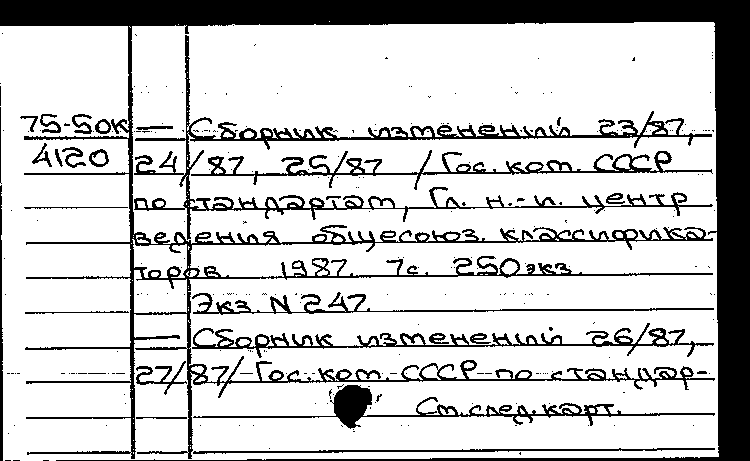 75-50к — Сборник изменений 23/87,
4120 24/87, 25/87 / Гос. ком. СССР
по стандартам, Гл. н.-и. центр
ведения общесоюз. классифика-
торов. 1987. 7с. 250экз.
Экз. N 247.
— Сборник изменений 26/87,
27/87/ Гос. ком. СССР по стандар-
См. след. карт.